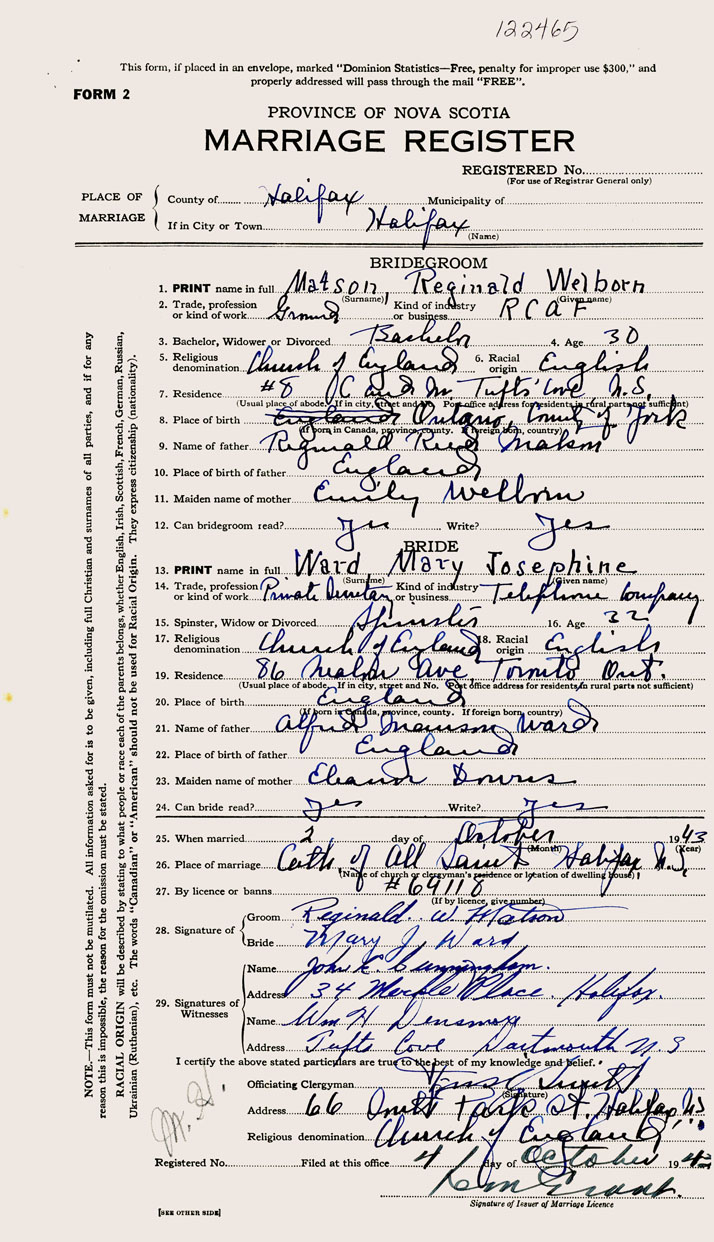 122465
This form, if placed in an envelope, marked "Dominion Statistics—Free, penalty for improper use $300," and
properly addressed will pass through the mail "FREE".
FORM 2
PROVINCE OF NOVA SCOTIA
MARRIAGE REGISTER
REGISTERED No.
(For use of Registrar General only)
PLACE OF MARRIAGE
County of Halifax Municipality of
If in City or Town Halifax
(Name)
BRIDEGROOM
1. PRINT name in full Matson, Reginald Welborn
(Surname) (Given name)
2. Trade, profession or kind of work Kind of industry or business R C A F
3. Bachelor, Widower or Divorced Bachelor 4. Age 30
5. Religious denomination Church of England 6. Racial origin English
7. Residence #8 Tufts' Cove N.S.
(Usual place of abode. If in city, street and No. Post office address for residents in rural parts not sufficient)
8. Place of birth England Ontario, of York
(If born in Canada, province, county. If foreign born, country)
9. Name of father Reginald Matson
10. Place of birth of father England
11. Maiden name of mother Emily Welborn
12. Can bridegroom read? Yes Write? Yes
BRIDE
13. PRINT name in full Ward Mary Josephine
(Surname) (Given name)
14. Trade, profession or kind of work Private Secretary Kind of industry or business Telephone Company
15. Spinster, Widow or Divorced Spinster 16. Age 32
17. Religious denomination Church of England 18. Racial origin English
19. Residence 86 Ave, Toronto Ont.
(Usual place of abode. If in city, street and No. Post office address for residents in rural parts not sufficient)
20. Place of birth England
(If born in Canada, province, county. If foreign born, country)
21. Name of father Alfred Ward
22. Place of birth of father England
23. Maiden name of mother Eleanor Downs
24. Can bride read? Yes Write? Yes
25. When married 2 day of October 1943
(Month) (Year)
26. Place of marriage Cath of All Saints Halifax N.S.
(Name of church or clergyman's residence or location of dwelling house)
27. By licence or banns #64118
(If by licence, give number)
28. Signature of
Groom Reginald. W. Matson
Bride Mary J. Ward
29. Signatures of Witnesses
Name John K. Cunningham.
Address 34 Place. Halifax.
Name Wm H Densmore
Address Tufts Cove Dartmouth N.S
I certify the above stated particulars are true to the best of my knowledge and belief.
Officiating Clergyman
(Signature)
Address 66 Park St. Halifax NS
Religious denomination Church of England
Registered No. Filed at this office 4 day of October 1943
Signature of Issuer of Marriage Licence
[SEE OTHER SIDE]
NOTE.—This form must not be mutilated. All information asked for is to be given, including full Christian and surnames of all parties, and if for any
reason this is impossible, the reason for the omission must be stated.
RACIAL ORIGIN will be described by stating to what people or race each of the parents belongs, whether English, Irish, Scottish, French, German, Russian,
Ukrainian (Ruthenian), etc. The words "Canadian" or "American" should not be used for Racial Origin. They express citizenship (nationality).